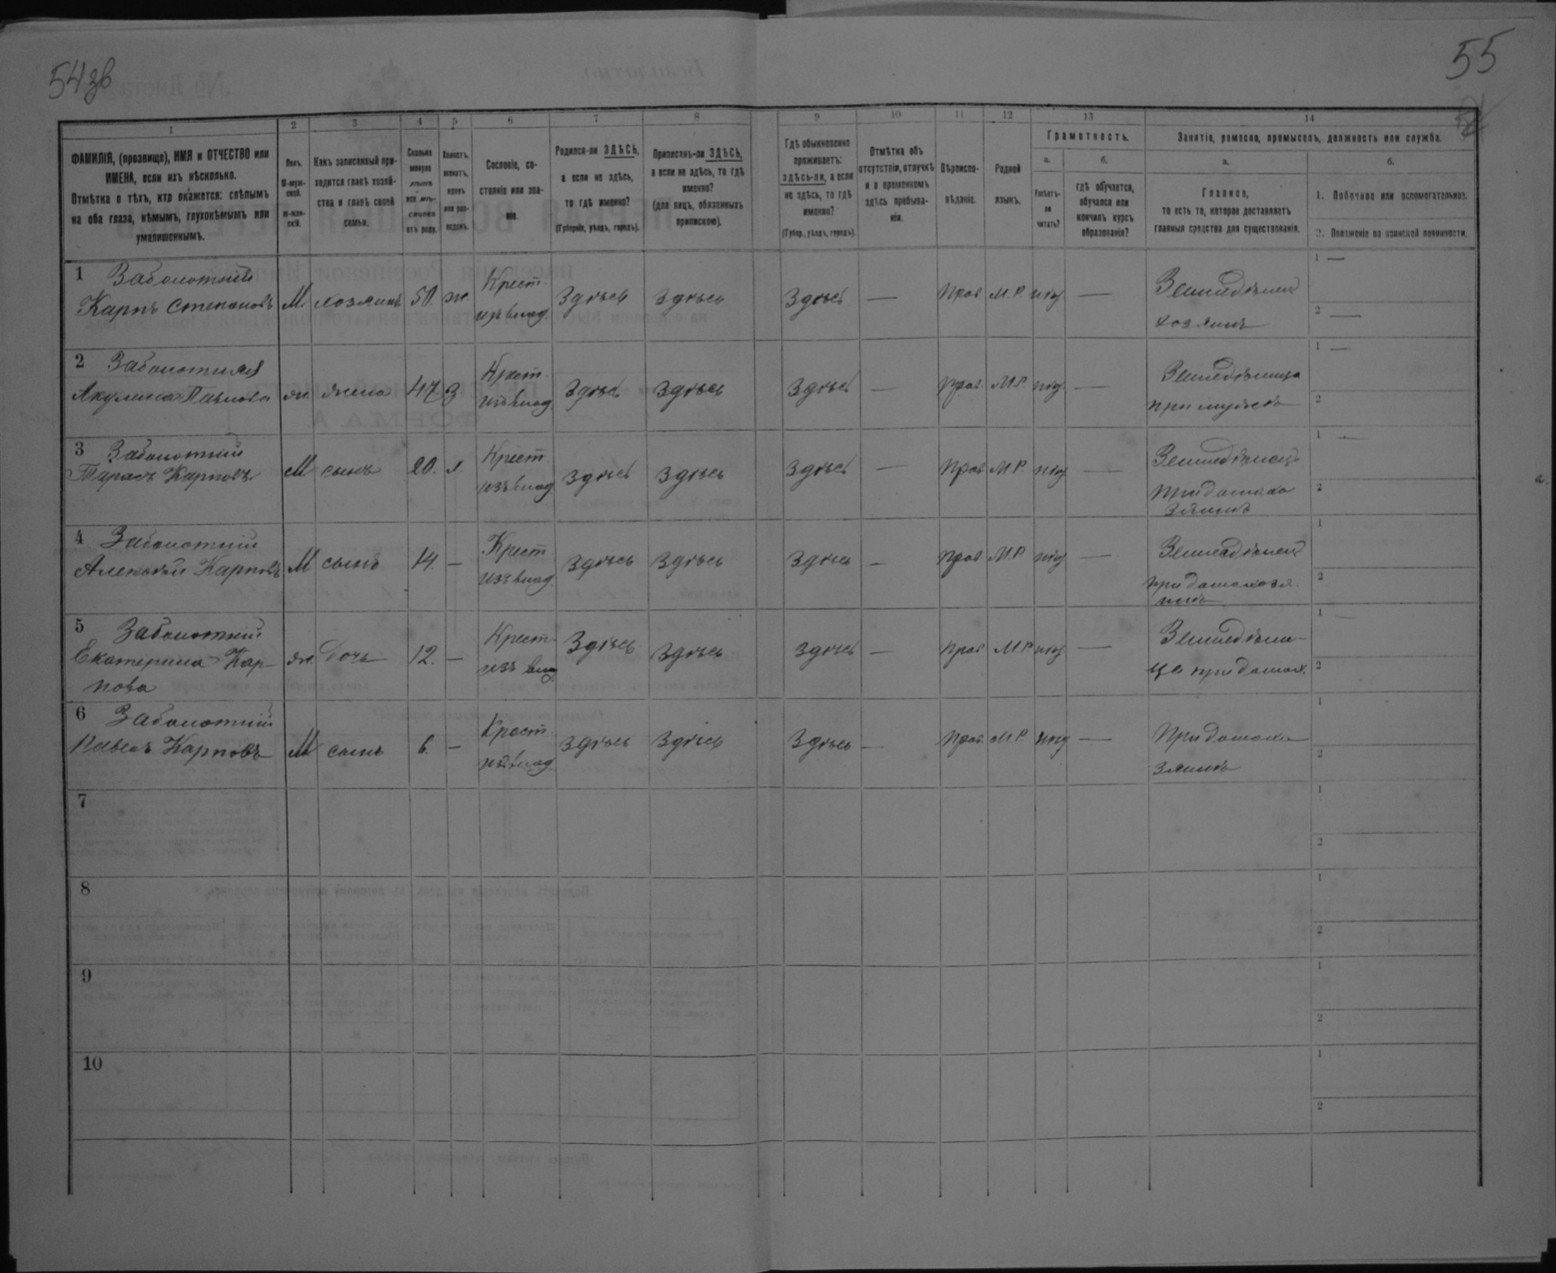 54 зв
55
1 2 3 4 5 6 7 8 9 10 11 12 13 14
ФАМИЛІЯ, (прозвище), ИМЯ и ОТЧЕСТВО или
ИМЕНА, если ихъ нѣсколько.
Отмѣтка о тѣхъ, кто окажется: слѣпымъ
на оба глаза, нѣмымъ, глухонѣмымъ или
умалишеннымъ.
Полъ.
М-муж-
ской.
Ж-жен-
скій.
Какъ записанный при-
ходится главѣ хозяй-
ства и главѣ своей
семьи.
Сколько
минуло
лѣтъ
или мѣ-
сяцевъ
отъ роду.
Холостъ,
женатъ,
вдовъ
или раз-
веденъ.
Сословіе, со-
стояніе или зва-
ніе.
Родился-ли ЗДѢСЬ,
а если не здѣсь,
то гдѣ именно?
(Губернія, уѣздъ, городъ).
Приписанъ-ли ЗДѢСЬ,
а если не здѣсь, то гдѣ
именно?
(для лицъ, обязанныхъ
припискою).
Гдѣ обыкновенно
проживаетъ:
здѣсь-ли, а если
не здѣсь, то гдѣ
именно?
(Губер., уѣздъ, городъ).
Отмѣтка объ
отсутствіи, отлучкѣ
и о временномъ
здѣсь пребыва-
ніи.
Вѣроиспо-
вѣданіе.
Родной
языкъ.
Грамотность.
а.
Умѣетъ-
ли
читать?
б.
гдѣ обучается,
обучался или
кончилъ курсъ
образованія?
Занятіе, ремесло, промыселъ, должность или служба.
а.
Главное,
то есть то, которое доставляетъ
главныя средства для существованія.
б.
1. Побочное или вспомогательное.
2. Положеніе по воинской повинности.
1 Заболотній
Карпъ Степановъ М хозяинъ 50. ж. Крест. изъ влад. Здѣсь Здѣсь Здѣсь — Прав М.Р. нѣт — Земледѣлец
хозяинъ
1 —
2 —
2 Заболотная
Акулина Павлова ж. жена 47 з Крест. изъ влад. Здѣсь Здѣсь Здѣсь — Прав М.Р. нѣт — Земледѣлица
при мужѣ
1 —
2
3 Заболотній
Тарасъ Карповъ М сынъ 20. х. Крест изъ влад. Здѣсь Здѣсь Здѣсь — Прав М.Р. нѣт — Земледѣлецъ
при домохо
зяинѣ
1 —
2
4 Заболотній
Алексѣй Карповъ М сынъ 14. — Крест изъ влад. Здѣсь Здѣсь Здѣсь — Прав М.Р. нѣт — Земледѣлец
при домохозя
инѣ
1
2
5 Заболотній
Екатерина Кар-
пова ж. дочь 12. — Крест изъ влад Здѣсь Здѣсь Здѣсь — Прав М.Р. нѣт — Земледѣли-
ца при домох.
1
2
6 Заболотній
Павелъ Карповъ М сынъ 6. — Крест изъ влад. Здѣсь Здѣсь Здѣсь — Прав. М.Р. нѣт — При домохо
зяинѣ
1
2
7
1
2
8
1
2
9
1
2
10
1
2